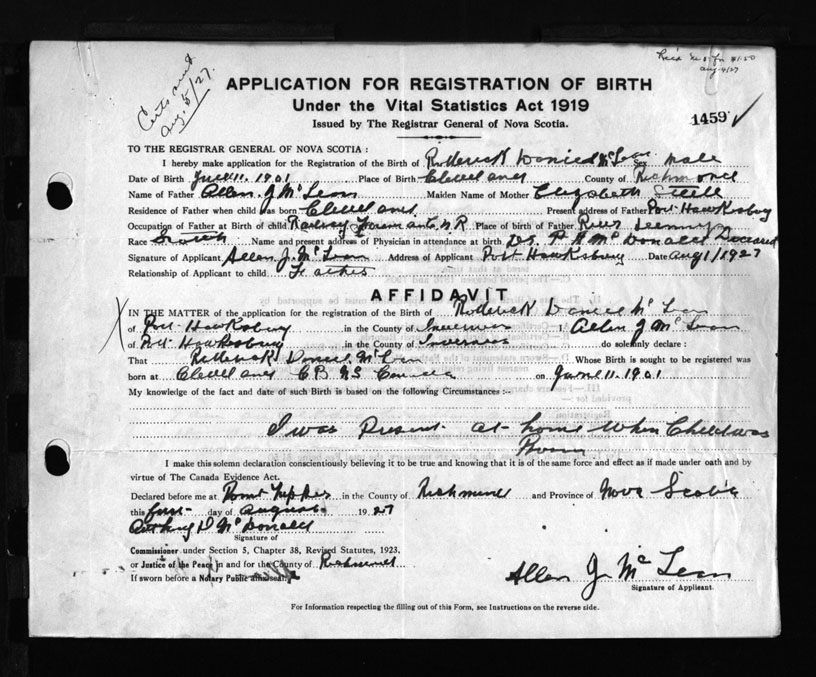 Certs sent
Aug. 5/27.
Aug. 4/27
APPLICATION FOR REGISTRATION OF BIRTH
Under the Vital Statistics Act 1919
Issued by The Registrar General of Nova Scotia.
1459
TO THE REGISTRAR GENERAL OF NOVA SCOTIA :
I hereby make application for the Registration of the Birth of Roderick Daniel McLean Male
Date of Birth June 11. 1901 Place of Birth Cleveland County of Richmond
Name of Father Allen J McLean Maiden Name of Mother Elizabeth Steele
Residence of Father when child was born Cleveland Present address of Father Port Hawksbury
Occupation of Father at Birth of child Railway Foreman R Place of birth of Father River
Race Scotch Name and present address of Physician in attendance at birth Dr. P A McDonald
Signature of Applicant Allen J. McLean Address of Applicant Port Hawksbury Date Aug 1/1927
Relationship of Applicant to child Father
AFFIDAVIT
IN THE MATTER of the application for the registration of the Birth of Roderick Daniel McLean
of Port Hawksbury in the County of Inverness I Allen J McLean
of Port Hawksbury in the County of Inverness do solemnly declare :
That Roderick Daniel McLean Whose Birth is sought to be registered was
born at Cleveland C B N S Canada on June 11. 1901
My knowledge of the fact and date of such Birth is based on the following Circumstances :-
I was Present at home when Child was
Born
I make this solemn declaration conscientiously believing it to be true and knowing that it is of the same force and effect as if made under oath and by
virtue of The Canada Evidence Act.
Declared before me at Point Tupper in the County of Richmond and Province of Nova Scotia
this first day of August 1927
McDonald
Signature of
Commissioner under Section 5, Chapter 38, Revised Statutes, 1923.
or Justice of the Peace in and for the County of Richmond
If sworn before a Notary Public
Allen J McLean
Signature of Applicant.
For Information respecting the filling out of this Form, see Instructions on the reverse side.